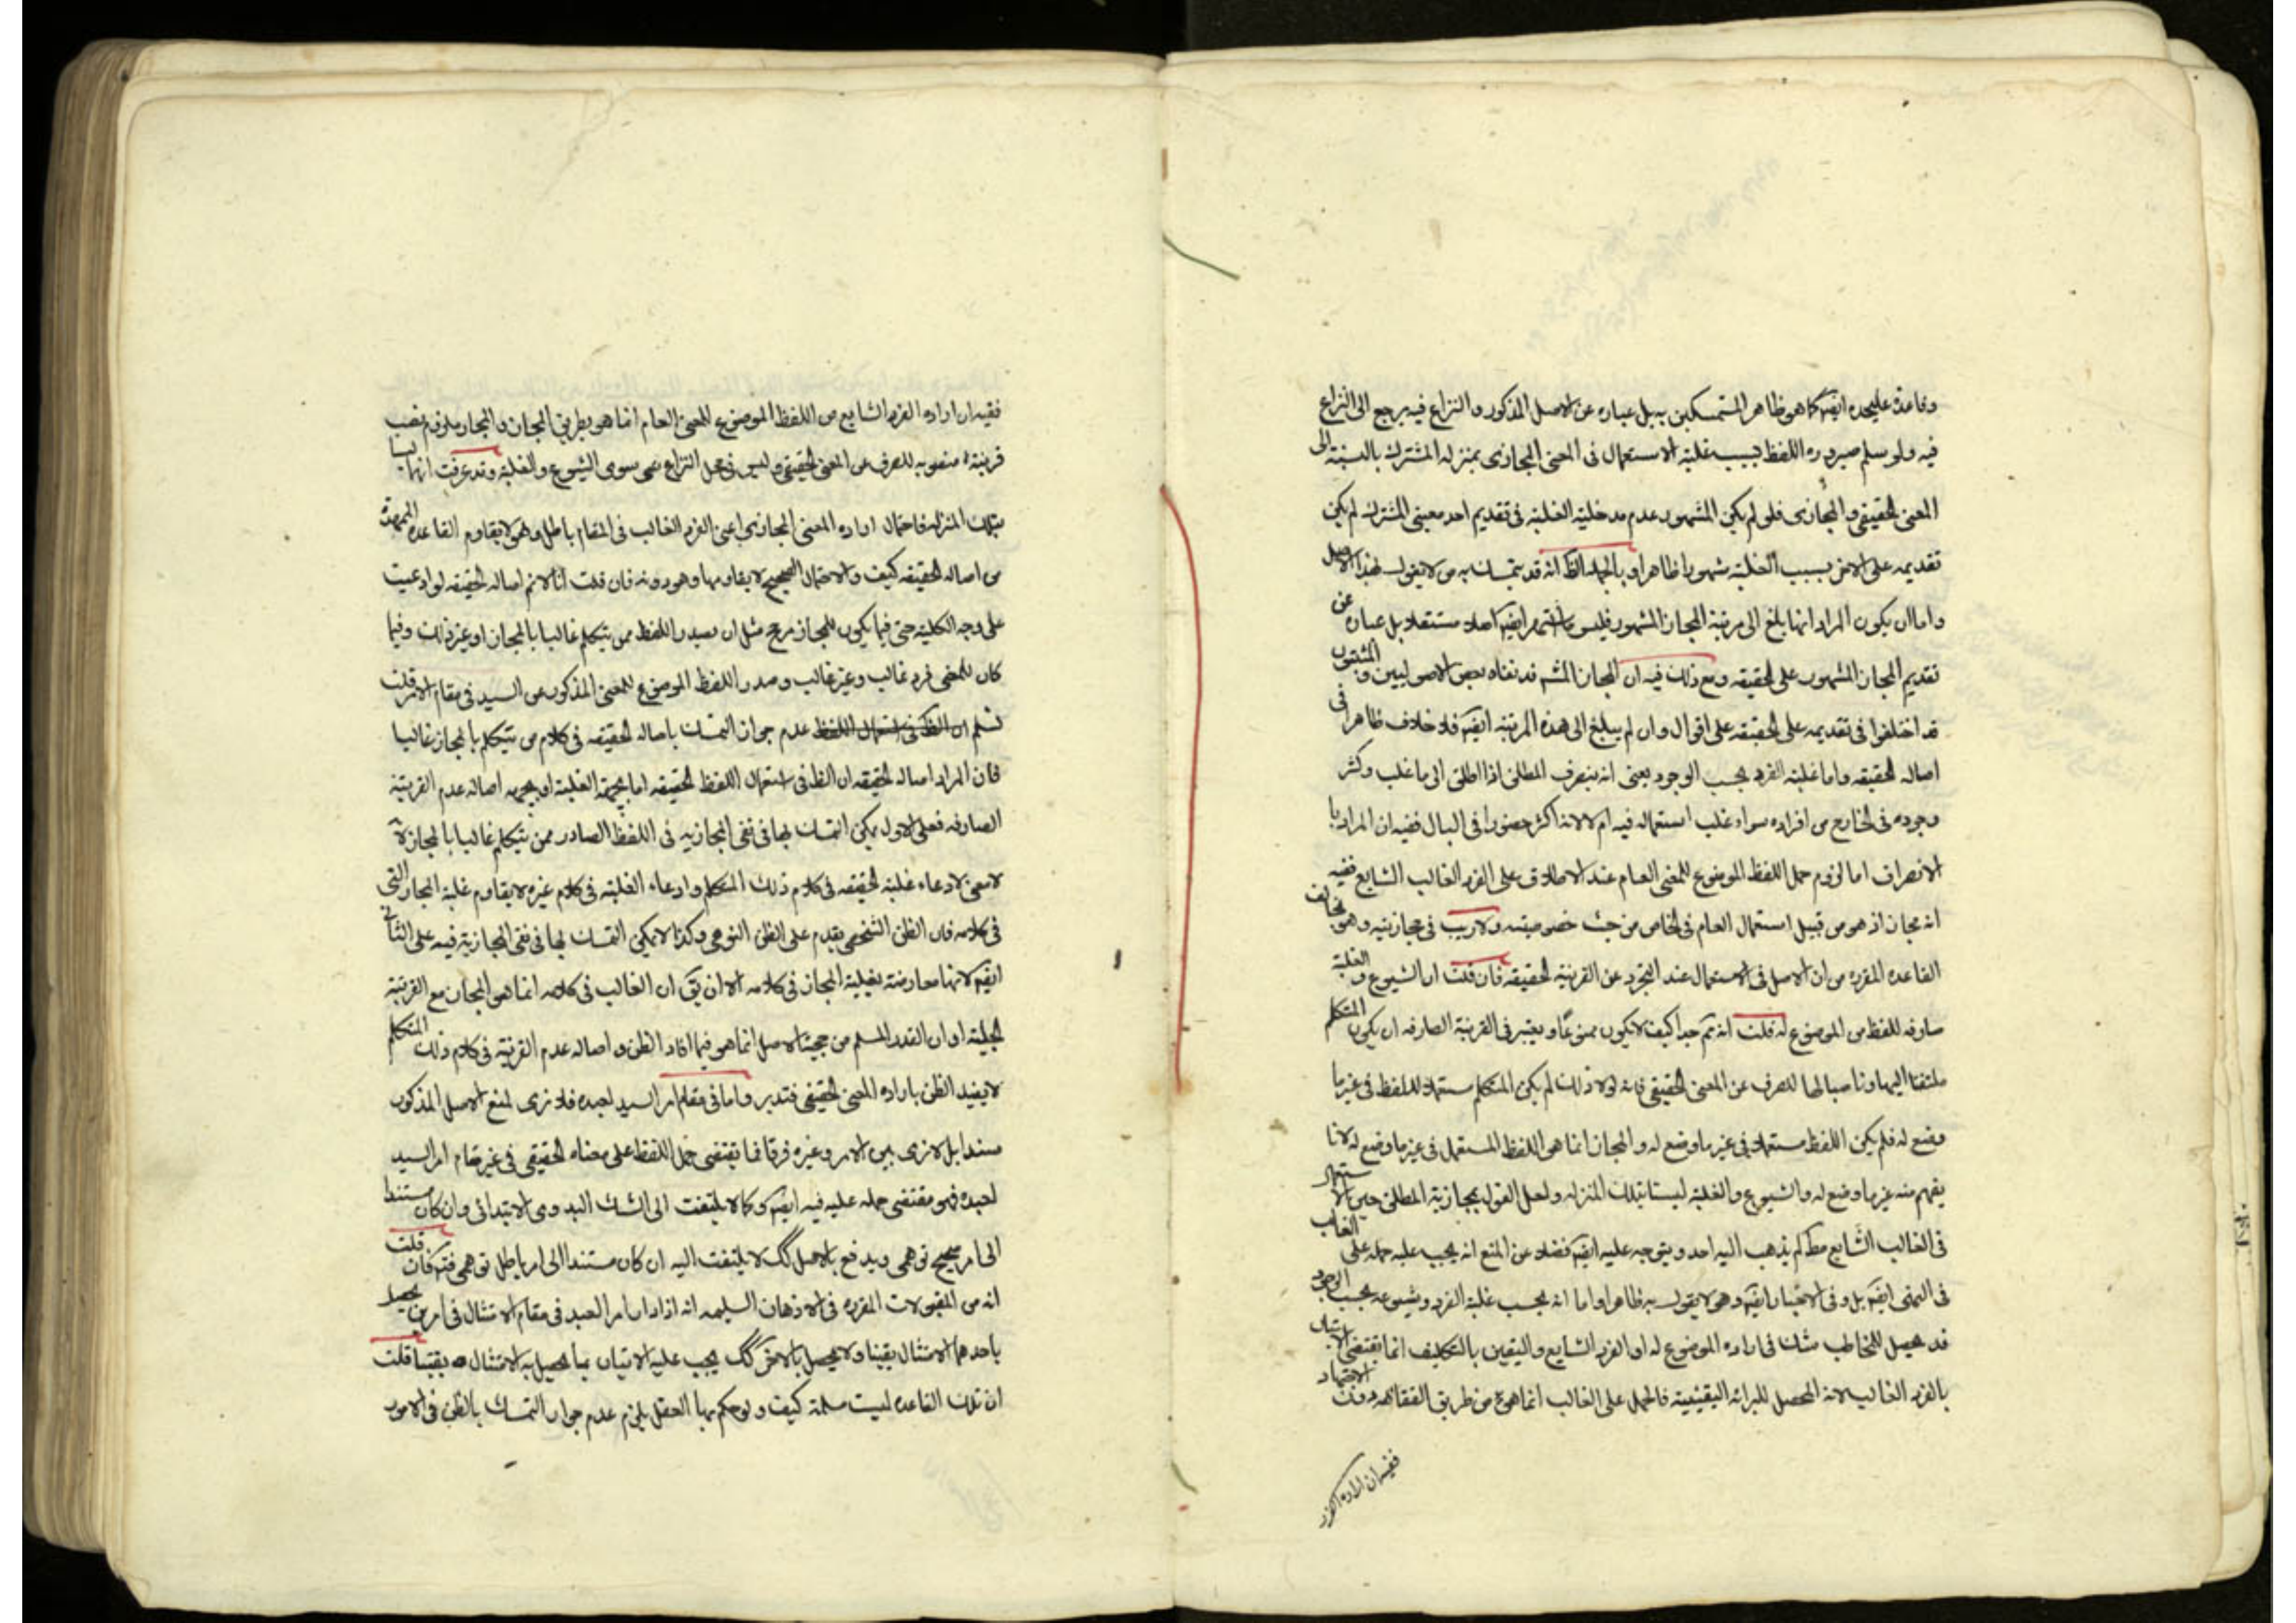 وقاعدة عليحده ايضا كما هو ظاهر المتمسكين به بل عباره عن الاصل المذكور والنزاع فيه يرجع الى النزاع
فيه ولو سلم صيروره اللفظ بسبب غلبة الاستعمال فى المعنى المجازى بمنزله المشترك بالنسبة الى
المعنى الحقيقى والمجازى فلو لم يكن المشهور عدم مدخلية الغلبة فى تقديم احد معنيى المشترك لم يكن
تقديمه على الاخر بسبب الغلبة مشهورا ظاهرا وبالجمله الظ انه قد يتمسك به من لا يقول بهذا الاصل
واما ان يكون المراد انها بلغ الى مرتبة المجاز المشهور فليس ايضا اصلا مستقلا بل عباره عن
تقديم المجاز المشهور على الحقيقه ومع ذلك فيه ان المجاز المشهـ قد نفاه بعض الاصوليين والمثبتون
قد اختلفوا فى تقديمه على الحقيقه على اقوال وان لم يبلغ الى هذه المرتبة ايضا فلا خلاف ظاهرا فى
اصاله الحقيقه واما غلبة الفرد بحسب الوجود بمعنى انه ينصرف المطلق اذا اطلق الى ما غلب وكثر
وجوده فى الخارج من افراده سواء غلب استعماله فيه ام لا لانه اكثر حضورا فى البال ففيه ان المراد با
الانصراف اما لزوم حمل اللفظ الموضوع للمعنى العام عند الاطلاق على الفرد الغالب الشايع ففيه
انه مجاز اذ هو من قبيل استعمال العام فى الخاص من حيث خصوصيته ولا ريب فى مجازيته وهو يخالف
القاعده المقرره من ان الاصل فى الاستعمال عند التجرد عن القرينة الحقيقه فان قلت ان الشيوع والغلبة
صارفه للفظ من الموضوع له قلت انه تم جدا كيف لا يكون ممنوعا ويعتبر فى القرينة الصارفه ان يكون المتكلم
ملتفتا اليها وناصبا لها للصرف عن المعنى الحقيقى فانه لولا ذلك لم يكن المتكلم مستعملا للفظ فى غير ما
وضع له فلم يكن اللفظ مستعملا فى غير ما وضع له والمجاز انما هى اللفظ المستعمل فى غير ما وضع له لا ما
يفهم منه غير ما وضع له والشيوع والغلبة ليستا بتلك المنزله ولعل القول بمجازية المطلق حين الاستعمال
فى الغالب الشايع مط لم يذهب اليه احد ويتوجه عليه ايضا فضلا عن المنع انه يجب عليه حمله على الغالب
فى التمنى ايضا بل وفى الاخبار ايضا وهو لا يقول به ظاهرا واما انه بحسب غلبة الفرد وشيوعه بحسب الوجود
قد يحصل للمخاطب شك فى اراده الموضوع له او الفرد الشايع واليقين بالتكليف انما يقتضى الاتيان
بالفرد الغالب لانه المحصل للبرائه اليقينية فالحمل على الغالب انما هو من طريق الفقاهه دون الاجتهاد
ففيه ان اراده الفرد
ففيه ان اراده الفرد الشايع من اللفظ الموضوع للمعنى العام انما هو بطريق المجاز والمجاز ملزوم نصب
قرينة منصوبه للصرف عن المعنى الحقيقى وليس فى محل النزاع شى سوى الشيوع والغلبة وقد عرفت انهما ليسا
بتلك المنزله فاحتمال اراده المعنى المجازى اعنى الفرد الغالب فى المقام باطل وهو لا يقاوم القاعده الممهدة
من اصاله الحقيقه كيف والاحتمال الصحيح لا يقاومها وهو دونه فان قلت انا لا نم اصاله الحقيقه لو ادعيت
على وجه الكلية حتى فيما يكون للمجاز مرجح مثل ان يصدر اللفظ ممن يتكلم غالبا بالمجاز او غير ذلك وفيما
كان للمعنى فرد غالب وغير غالب وصدر اللفظ الموضوع للمعنى المذكور عن السيد فى مقام الامر قلت
نسلم ان الظ فى استعمال اللفظ عدم جواز التمسك باصاله الحقيقه فى كلام من يتكلم بالمجاز غالبا
فان المراد اصاله الحقيقه ان الظ فى استعمال اللفظ الحقيقه اما بجهة الغلبة او بجهه اصاله عدم القرينة
الصارفه فعلى الاول يمكن التمسك بها فى نفى المجازيه فى اللفظ الصادر ممن يتكلم غالبا بالمجاز لانه
لا معنى لادعاء غلبة الحقيقه فى كلام ذلك المتكلم وادعاء الغلبة فى كلام غيره لا يقاوم غلبة المجاز التى
فى كلامه فان الظن الشخصى يقدم على الظن النوعى وكذا لا يمكن التمسك بها فى نفى المجازية فيه على الثانى
ايضا لانها معارضة بغلبة المجاز فى كلامه الا ان يق ان الغالب فى كلامه انما هو المجاز مع القرينة
الجلية او ان القدر المسلم من حجية الاصل انما هو فيما افاد الظن واصاله عدم القرينة فى كلام ذلك المتكلم
لا يفيد الظن باراده المعنى الحقيقى فتدبر واما فى مقام امر السيد لعبده فلا نرى لمنع الاصل المذكور
مستندا بل لا نرى بين الامر وغيره فرقا فما يقتضى حمل اللفظ على معناه الحقيقى فى غير مقام امر السيد
لعبده فهو مقتضى حمله عليه فيه ايضا وكما لا يلتفت الى الشك البدوى الابتدائى وان كان مستندا
الى امر صحيح توهمى ويدفع بالاصل كك لا يلتفت اليه ان كان مستندا الى امر باطل توهمى فتم فان قلت
انه من المقبولات المقرره فى الاذهان السليمه انه اذا دار امر العبد فى مقام الامتثال فى امرين يحصل
باحدهما الامتثال يقينا ولا يحصل بالاخر كك يجب عليه الاتيان بما يحصل به الامتثال يقينا قلت
ان تلك القاعده ليست مسلمة كيف ولو حكم بها العقل يلزم عدم جواز التمسك بالظن فى الامور